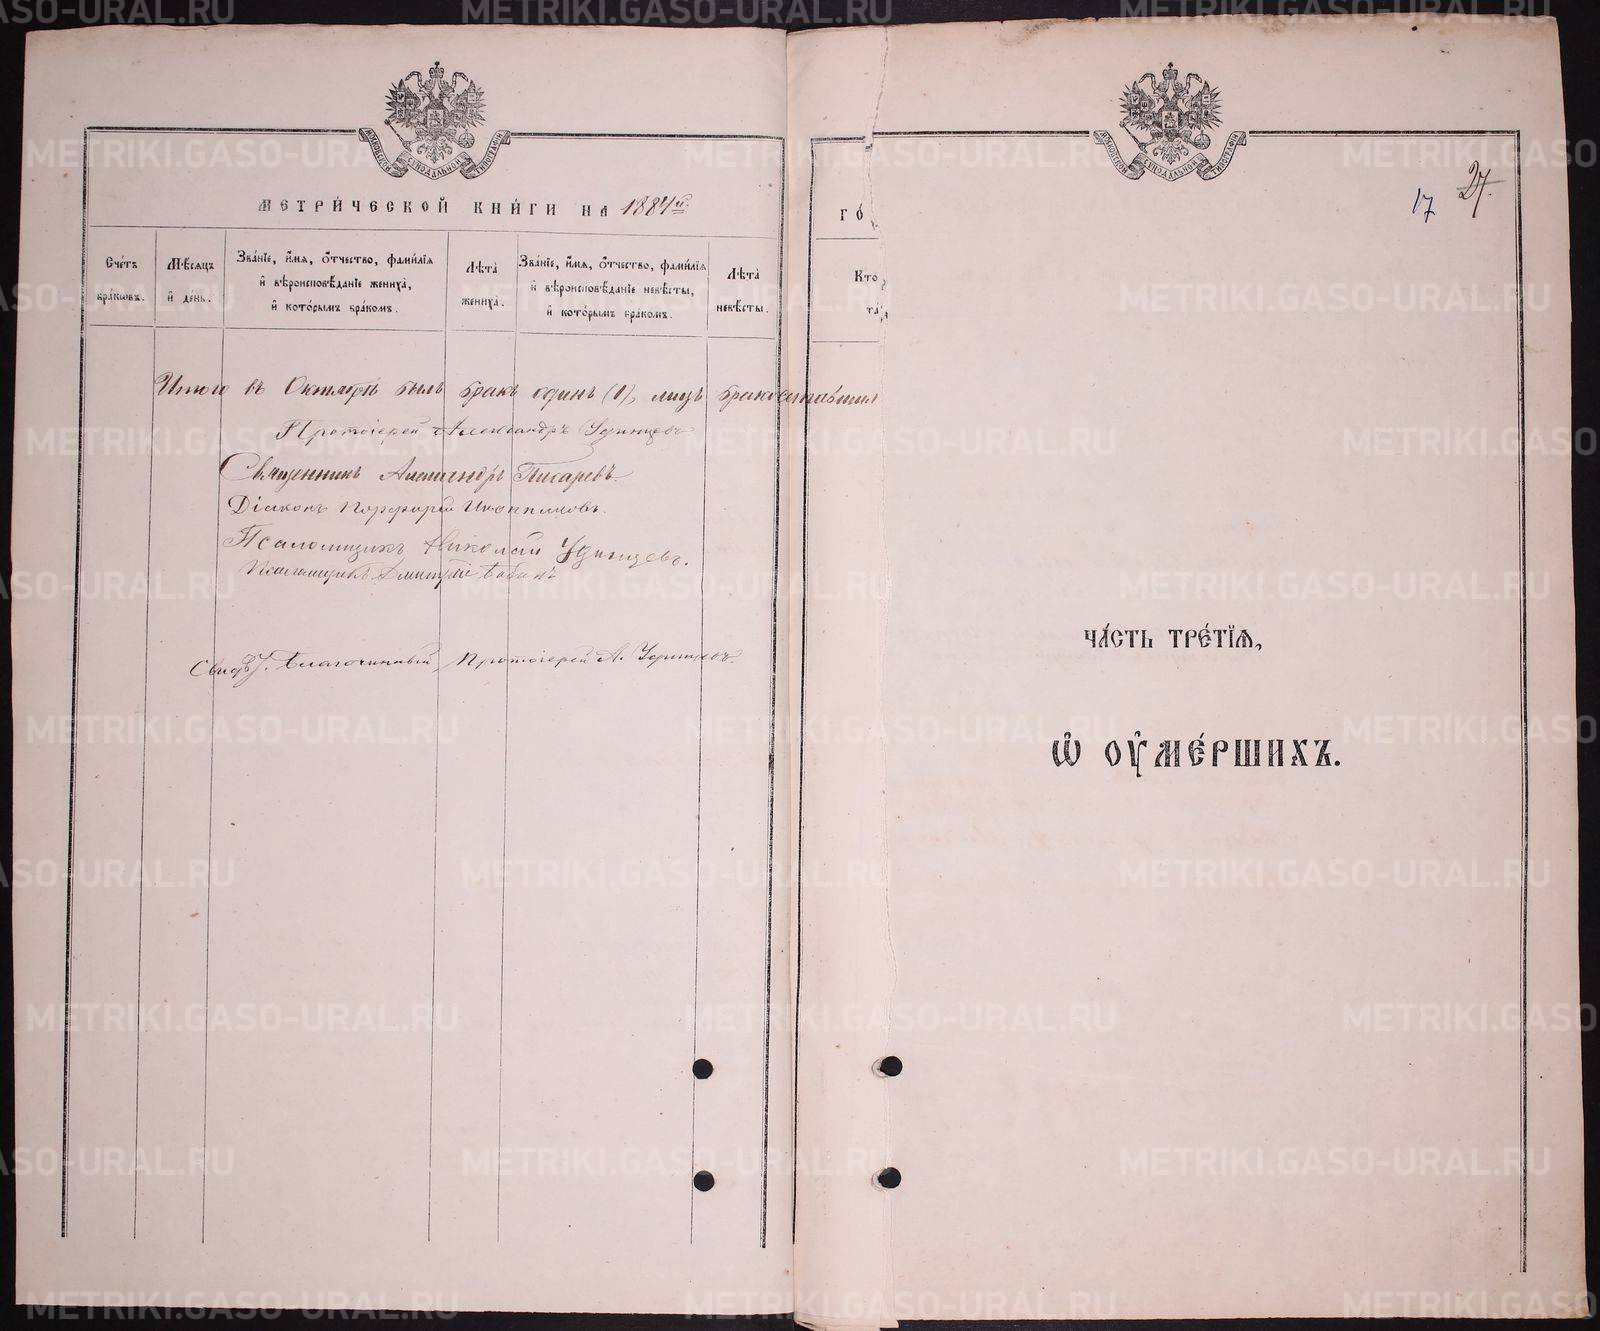 МОСКОВСКОЙ СѴНОДАЛЬНОЙ ТИПОГРАФІИ
МЕТРИ́ЧЕСКОЙ КНИ́ГИ НА 1884й.
Сче́тъ бра́кѡвъ.
Мѣ́сѧцъ и҆ де́нь.
Зва́нїе, и҆́мѧ, ѻ҆́тчество, фами́лїѧ и҆ вѣроисповѣ́данїе жениха̀, и҆ кото́рымъ бра́комъ.
Лѣта̀ жениха̀.
Зва́нїе, и҆́мѧ, ѻ҆́тчество, фами́лїѧ и҆ вѣроисповѣ́данїе невѣ́сты, и҆ кото́рымъ бра́комъ.
Лѣта̀ невѣ́сты.
Итого въ Октябрѣ былъ бракъ одинъ (1), лицъ
Протоіерей Александръ Удинцевъ
Священникъ Александръ Писаревъ.
Діаконъ Порфирій Иконниковъ.
Псаломщикъ Николай Удинцевъ.
Псаломщикъ Дмитрій Бабинъ
Свидѣт. Благочинный, Протоіерей А. Удинцевъ.
МОСКОВСКОЙ СѴНОДАЛЬНОЙ ТИПОГРАФІИ
ГО́
Кто
та
17 27.
ЧА́СТЬ ТРЕ́ТЇѦ,
Ѡ҆ ОУ҆МЕ́РШИХЪ.
METRIKI.GASO-URAL.RU